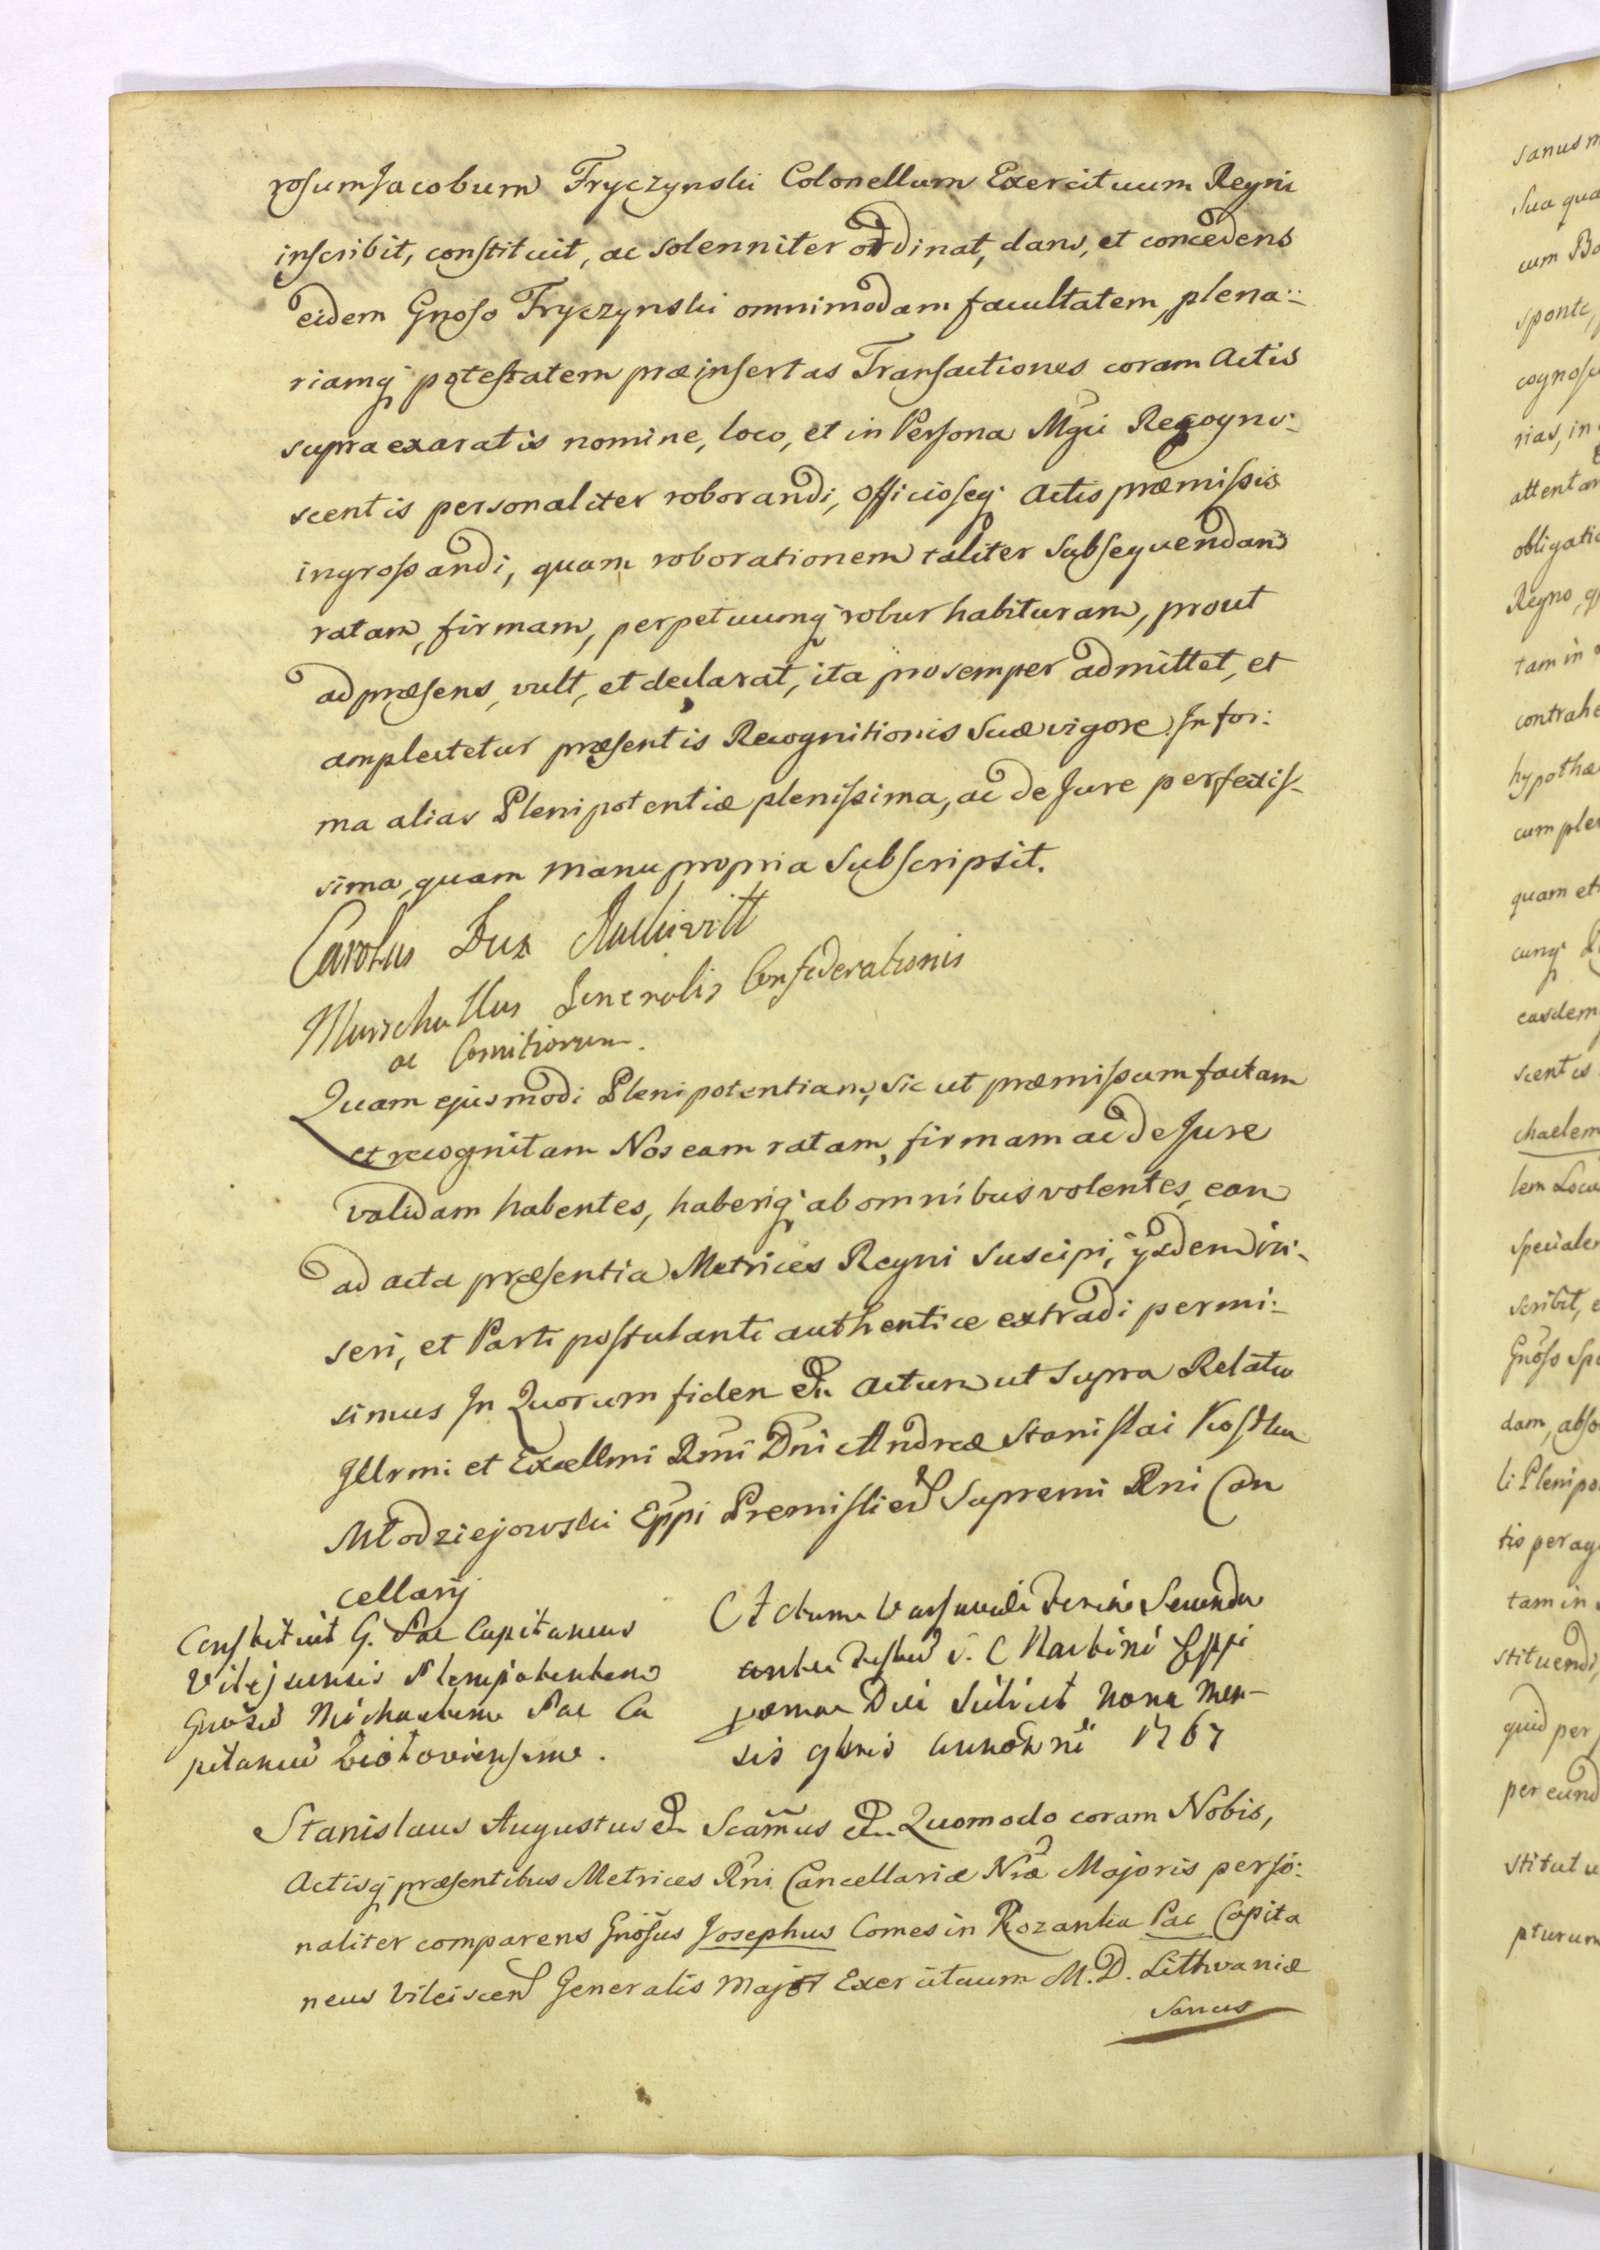 rosum Jacobum Fryczynski Colonellum Exercituum Regni
inscribit, constituit, ac solenniter ordinat, dans, et concedens
eidem Gnoso Fryczynski omnimodam facultatem, plena:
riamq potestatem præinsertas Transactiones coram Actis
supra exaratis nomine, loco, et in Persona Mgci Recogno:
scentis personaliter roborandi, Officioseq Actis præmissis
ingrossandi, quam roborationem taliter subsequendam
ratam, firmam, perpetuumq robur habituram, prout
ad præsens, vult, et declarat, ita pro semper admittet, et
amplectetur præsentis Recognitionis suæ vigore. In for:
ma alias Plenipotentiæ plenissima, ac de Jure perfectis-
sima, quam manu propria subscripsit.
Carolus Dux Radzivill
Marschallus Generalis Confederationis
ac Comitiorum.
Quam ejusmodi Plenipotentiam, sic ut præmissum factam
et recognitam Nos eam ratam, firmam ac de Jure
validam habentes, haberiq ab omnibus volentes, eam
ad acta præsentia Metrices Regni suscipi, ysdem in-
seri, et Parti postulanti authentice extradi permi:
simus In Quorum fidem &c Actum ut supra Relatio
Illrmi et Excellmi Rmi Dni Andreæ Stanislai Kostka
Młodziejowski Eppi Premislien Supremi Rni Can
cellarij
Constituit G. Pac Capitaneus
Vilejsensis Plenipotentem
Gnosu Michaelem Pac Ca
pitaneu Ziołoviensem.
Actum Varsaviæ Feria Secunda
ante Festu S. Martini Eppi
proma Die scilicet nona Men-
sis 9bris Anno Dni 1767
Stanislaus Augustus &c Scamus &c Quomodo coram Nobis,
Actisq præsentibus Metrices Rni Cancellariæ Nræ Majoris perso:
naliter comparens Gnosus Josephus Comes in Rozanka Pac Capita
neus Vileiscen Generalis Major Exercituum M. D. Lithvaniæ
Sanus